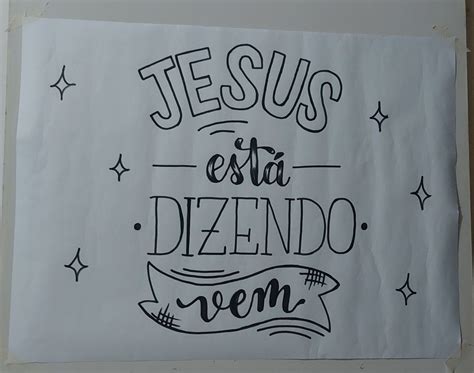 JESUS
está
DIZENDO
vem